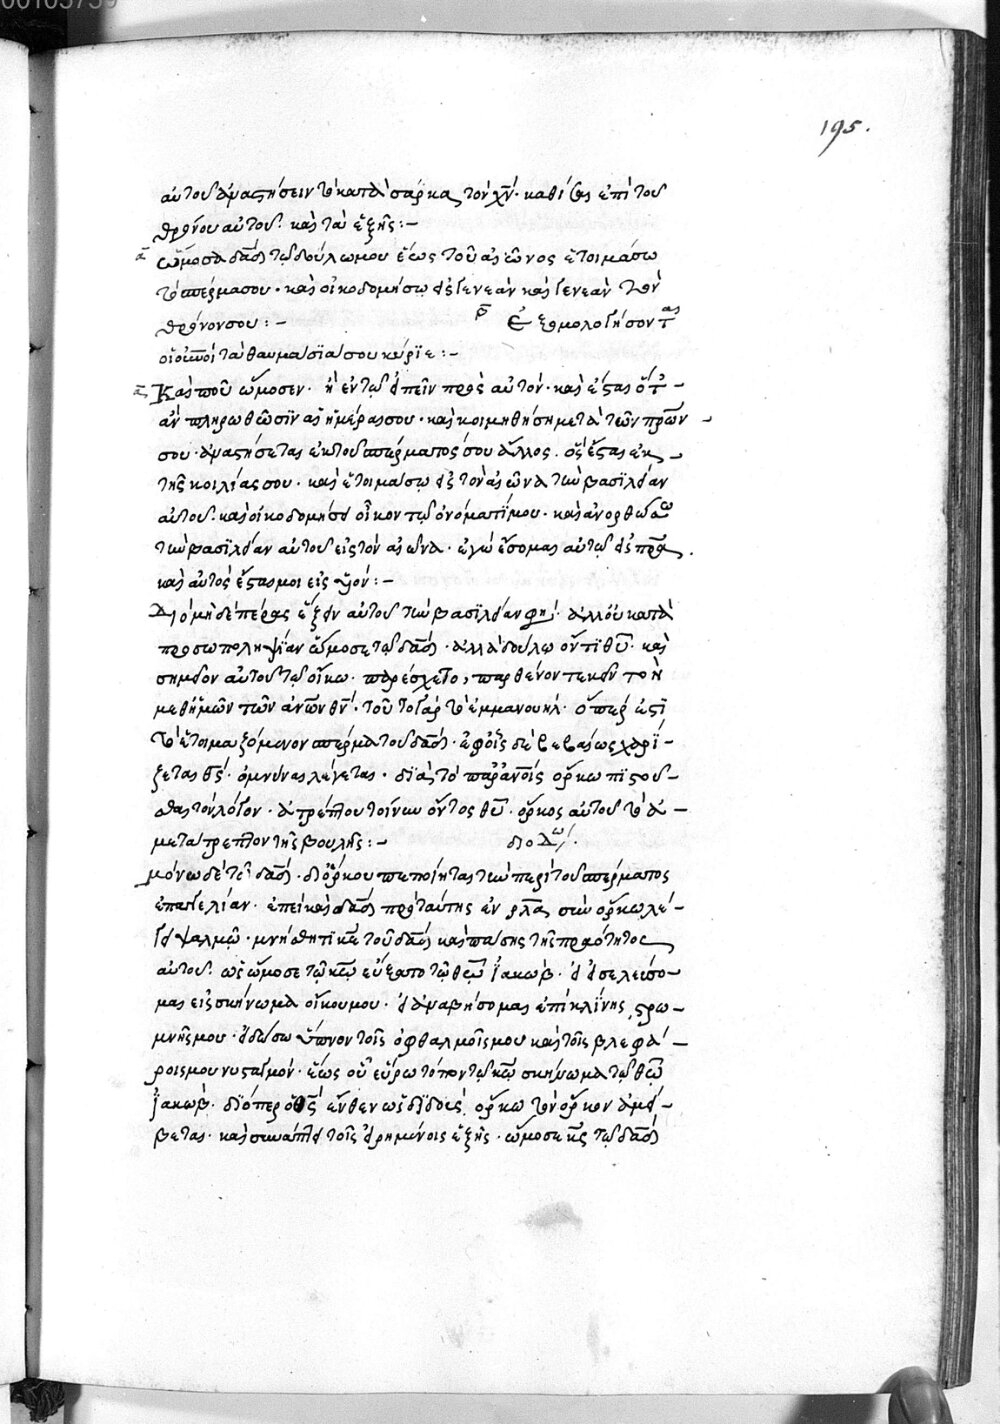 195.
αὐτοῦ ἀναστήσειν τὸ κατὰ σάρκα τὸν χν· καθίσαι ἐπὶ τοῦ
θρόνου αὐτοῦ· καὶ τὰ ἑξῆς :-
ὤμοσα δαδ τῷ δούλω μου ἕως τοῦ αἰῶνος ἑτοιμάσω
τὸ σπέρμα σου· καὶ οἰκοδομήσω εἰς γενεὰν καὶ γενεὰν τὸν
θρόνον σου :- Ἐξομολογήσονται
οἱ οὐνοὶ τὰ θαυμάσϊα σου κύριε :-
Καὶ ποῦ ὤμοσεν· ἢ ἐν τῷ εἰπεῖν πρὸς αὐτὸν· καὶ ἔσται ὅτ
ἂν πληρωθῶσϊν αἱ ἡμέραι σου· καὶ κοιμηθήση μετὰ τῶν πρων
σου· ἀναστήσεται ἐκ τοῦ σπέρματός σου ἄλλος· ὃς ἔσται ἐκ
τῆς κοιλίας σου· καὶ ἑτοιμάσω εἰς τὸν αἰῶνα τὴν βασϊλείαν
αὐτοῦ· καὶ οἰκοδομήσει οἶκον τῷ ὀνόματί μου· καὶ ἀνορθώσω
τὴν βασϊλείαν αὐτοῦ εἰς τὸν αἰῶνα· ἐγὼ ἔσομαι αὐτῷ εἰς πρα
καὶ αὐτὸς ἔσται μοι εἰς υἱόν :-
Διὸ μηδὲ πέρας ἕξειν αὐτοῦ τὴν βασϊλείαν φησί· ἀλλ' οὐ κατὰ
προσωποληψίαν ὤμοσε τῷ δαδ· ἀλλὰ δούλω ὄντϊ θυ· καὶ
σημεῖον αὐτοῦ τῷ οἴκω παρέσχετο, παρθένον τεκεῖν τὸν
μεθ' ἡμῶν τῶν ἀνων θν· τοῦτο γὰρ τὸ ἐμμανουήλ· ὅπερ ἐστὶ
τὸ ἑτοιμαζόμενον σπέρμα τοῦ δαδ· ἐφ' οἷς δὲ βεβαίως χαρί-
ζεται θς· ὀμνύναι λέγεται· διὰ τὸ παρ' ἀνοις ὅρκω πϊστοῦ-
σθαι τὸν λόγον· ἀτρέπτου τοίνυν ὄντος θυ· ὅρκος αὐτοῦ τὸ ἀ-
μετάτρεπτον τῆς βουλῆς :-
μόνω δὲ τῷ δαδ· δι' ὅρκου πεποίηται τὴν περὶ τοῦ σπέρματος
ἐπαγγελίαν· ἐπεὶ καὶ δαδ πρὸ ταύτης ἐν ρλα σὺν ὅρκω λέ-
γει ψαλμῷ· μνήσθητϊ κε τοῦ δαδ καὶ πάσης τῆς πραότητος
αὐτοῦ· ὡς ὤμοσε τῷ κω εὔξατο τῷ θω ϊακώβ· εἰ εἰσελεύσο-
μαι εἰς σκήνωμα οἴκου μου· εἰ ἀναβήσομαι ἐπὶ κλίνης στρω-
μνῆς μου· εἰ δώσω ὕπνον τοῖς ὀφθαλμοῖς μου καὶ τοῖς βλεφά-
ροις μου νυσταγμόν· ἕως οὗ εὕρω τόπον τῷ κω σκήνωμα τῷ θω
ϊακώβ· δϊόπερ ὁ θς
βεται· καὶ συνάπτει τοῖς εἰρημένοις ἑξῆς· ὤμοσε κς τῷ δαδ